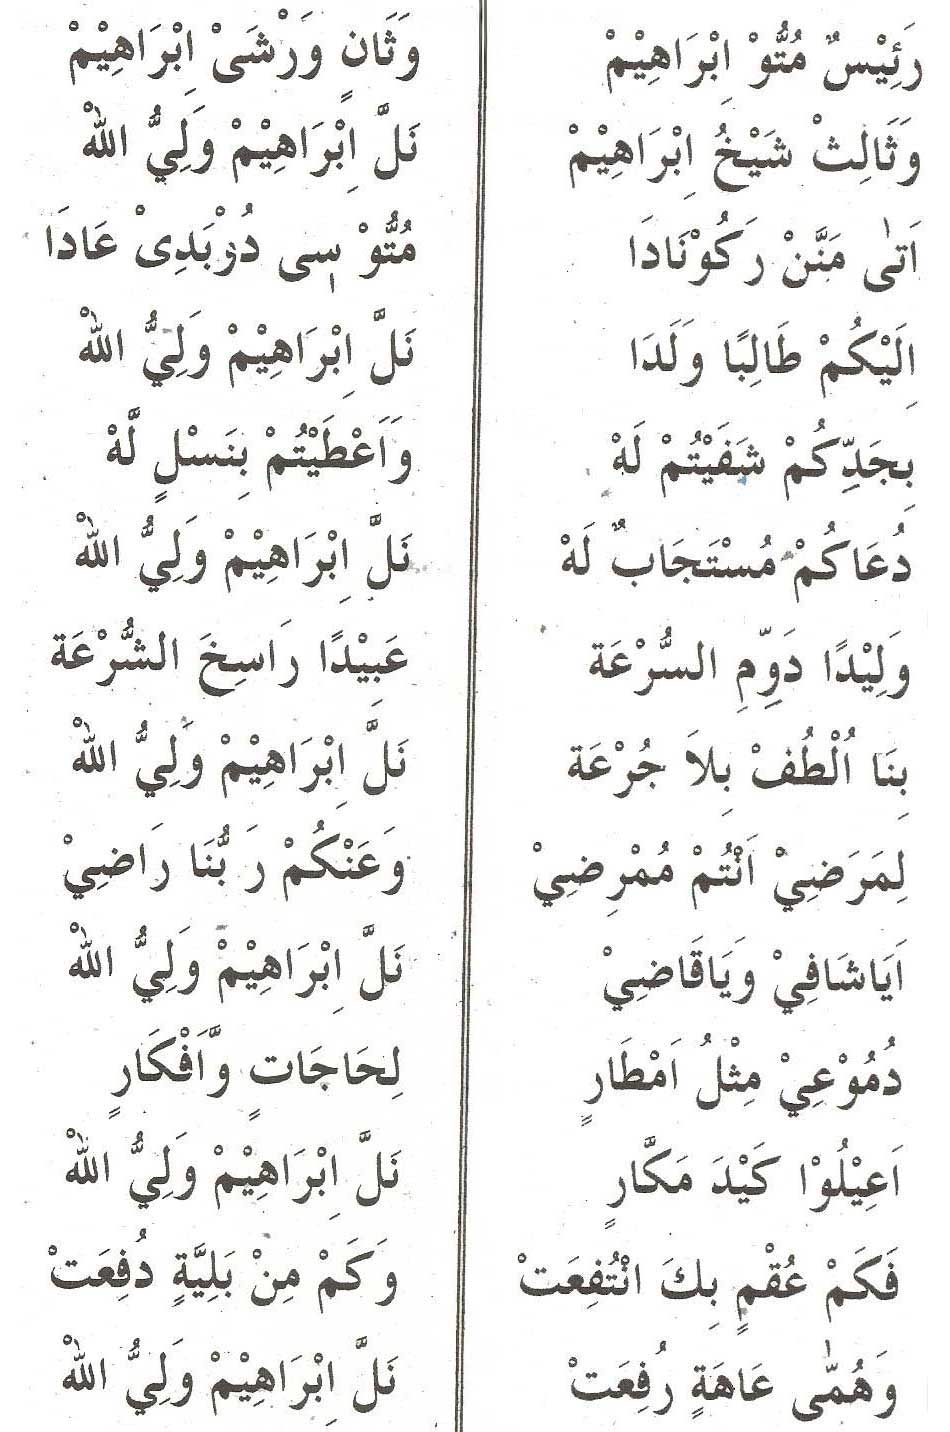 رَئِيْسٌ مُتُّوْ اِبْرَاهِيْمْ وَثَانٍ وَرْشَىْ اِبْرَاهِيْمْ
وَثَالِثْ شَيْخُ اِبْرَاهِيْمْ نَلَّ اِبْرَاهِيْمْ وَلِيُّ اللهْ
اَتٰى مَنَّنْ رَكُوْنَادَا مُتُّوْ سٖى دُوْبَدِىْ عَادَا
اِلَيْكُمْ طَالِبًا وَلَدَا نَلَّ اِبْرَاهِيْمْ وَلِيُّ اللهْ
بِجَدِّكُمْ شَفَيْتُمْ لَهْ وَاَعْطَيْتُمْ بِنَسْلٍ لَّهْ
دُعَاكُمْ مُسْتَجَابٌ لَهْ نَلَّ اِبْرَاهِيْمْ وَلِيُّ اللهْ
وَلِيْدًا دَوِّمِ السُّرْعَة عَبِيْدًا رَاسِخَ الشُّرْعَة
بِنَا اُلْطُفْ بِلاَ جُرْعَة نَلَّ اِبْرَاهِيْمْ وَلِيُّ اللهْ
لِمَرَضِيْ اَنْتُمْ مُمْرِضِيْ وَعَنْكُمْ رَبُّنَا رَاضِيْ
اَيَاشَافِيْ وَيَاقَاضِيْ نَلَّ اِبْرَاهِيْمْ وَلِيُّ اللهْ
دُمُوْعِيْ مِثْلُ اَمْطَارٍ لِحَاجَاتٍ وَّاَفْكَارٍ
اَعِيْلُوْا كَيْدَ مَكَّارٍ نَلَّ اِبْرَاهِيْمْ وَلِيُّ اللهْ
فَكَمْ عُقْمٍ بِكَ انْتُفِعَتْ وَكَمْ مِنْ بَلِيَّةٍ دُفِعَتْ
وَهُمّٰى عَاهَةٍ رُفِعَتْ نَلَّ اِبْرَاهِيْمْ وَلِيُّ اللهْ